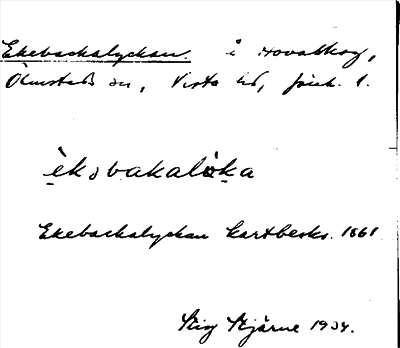 Ekebackalyckan. i Hovalskog,
Ölmstads sn, Vista hd, Jönk. l.
èkəbakalỳka
Ekebackalyckan kartbeskr. 1861
Stig Stjärne 1934.